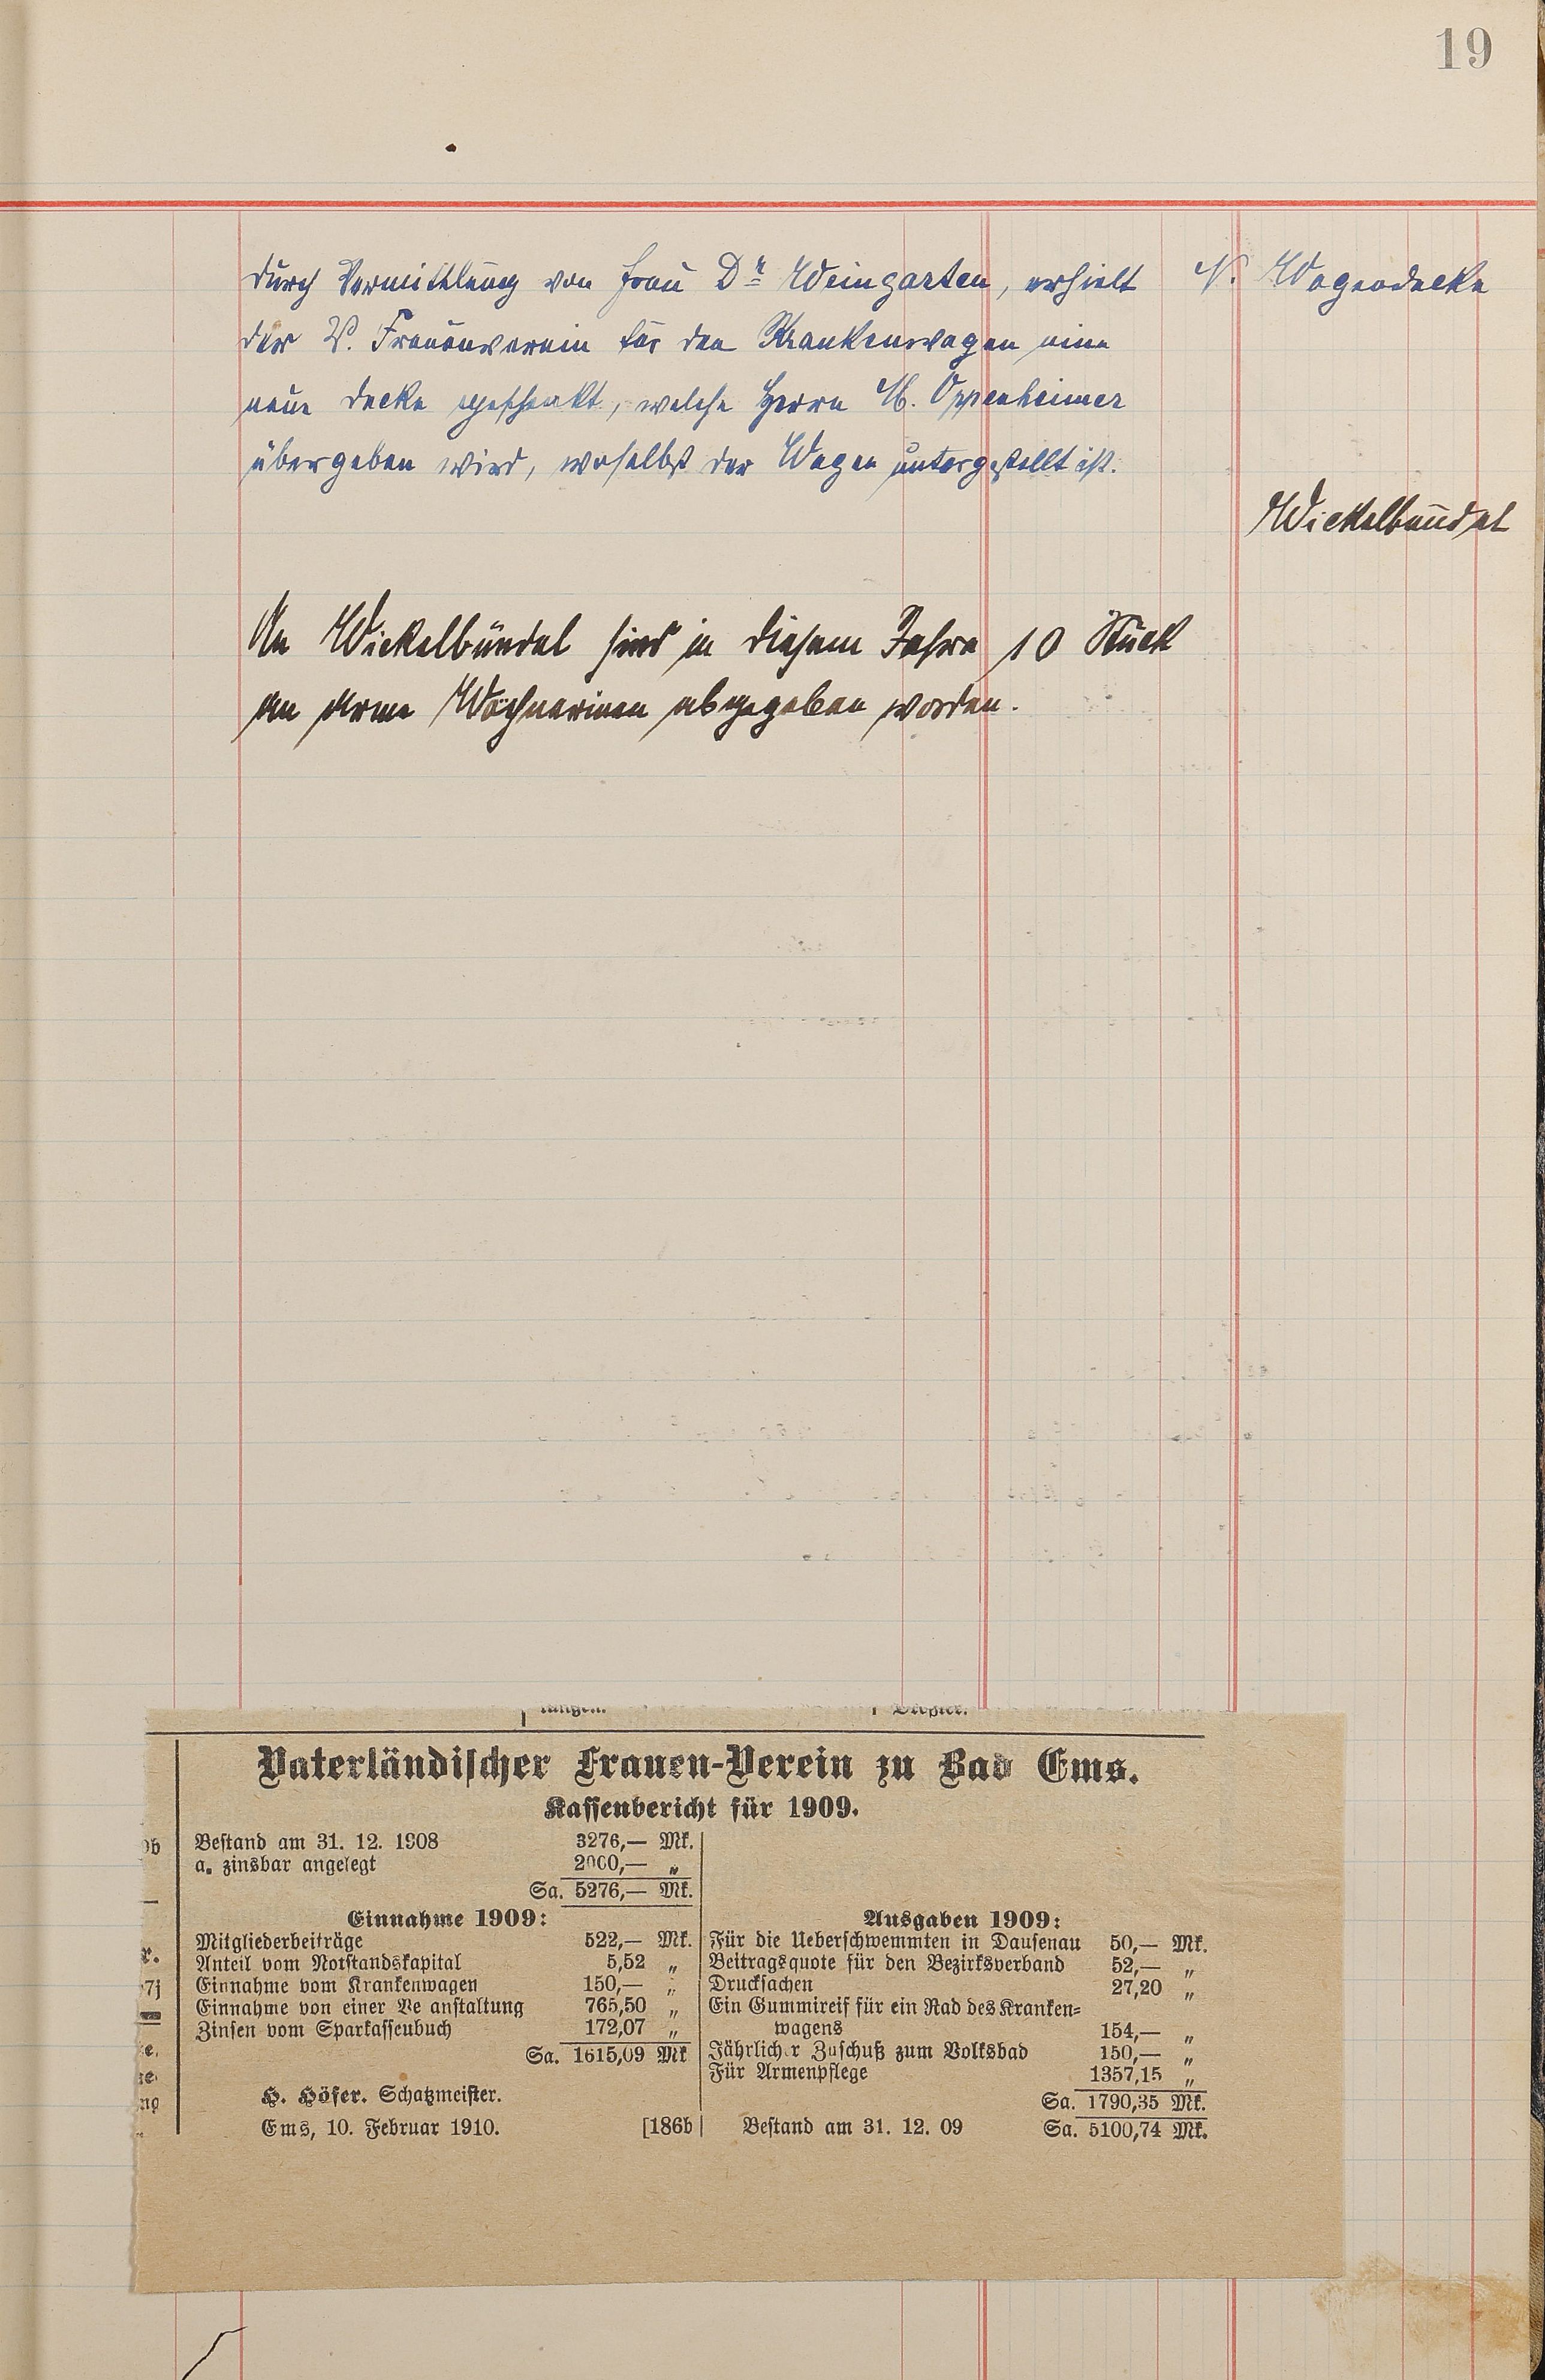 19
durch Vermittlung von Frau Dr Weingarten, erhielt
der V. Frauenverein für den Krankenwagen eine
neue Decke geschenkt, welche Herrn M. Oppenheimer
übergeben wird, woselbst der Wagen untergestellt ist.
N. Wagendecke
Wickelbündel
An Wickelbündel sind in diesem Jahre 10 Stück
an arme Wöchnerinen abgegeben worden.
Vaterländischer Frauen-Verein zu Bad Ems.
Kassenbericht für 1909.
Bestand am 31. 12. 1908 3276,— Mk.
a. zinsbar angelegt 2000,— „
Sa. 5276,— Mk.
Einnahme 1909:
Mitgliederbeiträge 522,— Mk.
Anteil vom Notstandskapital 5,52 „
Einnahme vom Krankenwagen 150,— „
Einnahme von einer Ve anstaltung 765,50 „
Zinsen vom Sparkassenbuch 172,07 „
Sa. 1615,09 Mk
H. Höfer. Schatzmeister.
Ems, 10. Februar 1910. [186b
Ausgaben 1909:
Für die Ueberschwemmten in Dausenau 50,— Mk.
Beitragsquote für den Bezirksverband 52,— „
Drucksachen 27,20 „
Ein Gummireif für ein Rad des Kranken=
wagens 154,— „
Jährlich r Zuschuß zum Volksbad 150,— „
Für Armenpflege 1357,15 „
Sa. 1790,35 Mk.
Bestand am 31. 12. 09 Sa. 5100,74 Mk.